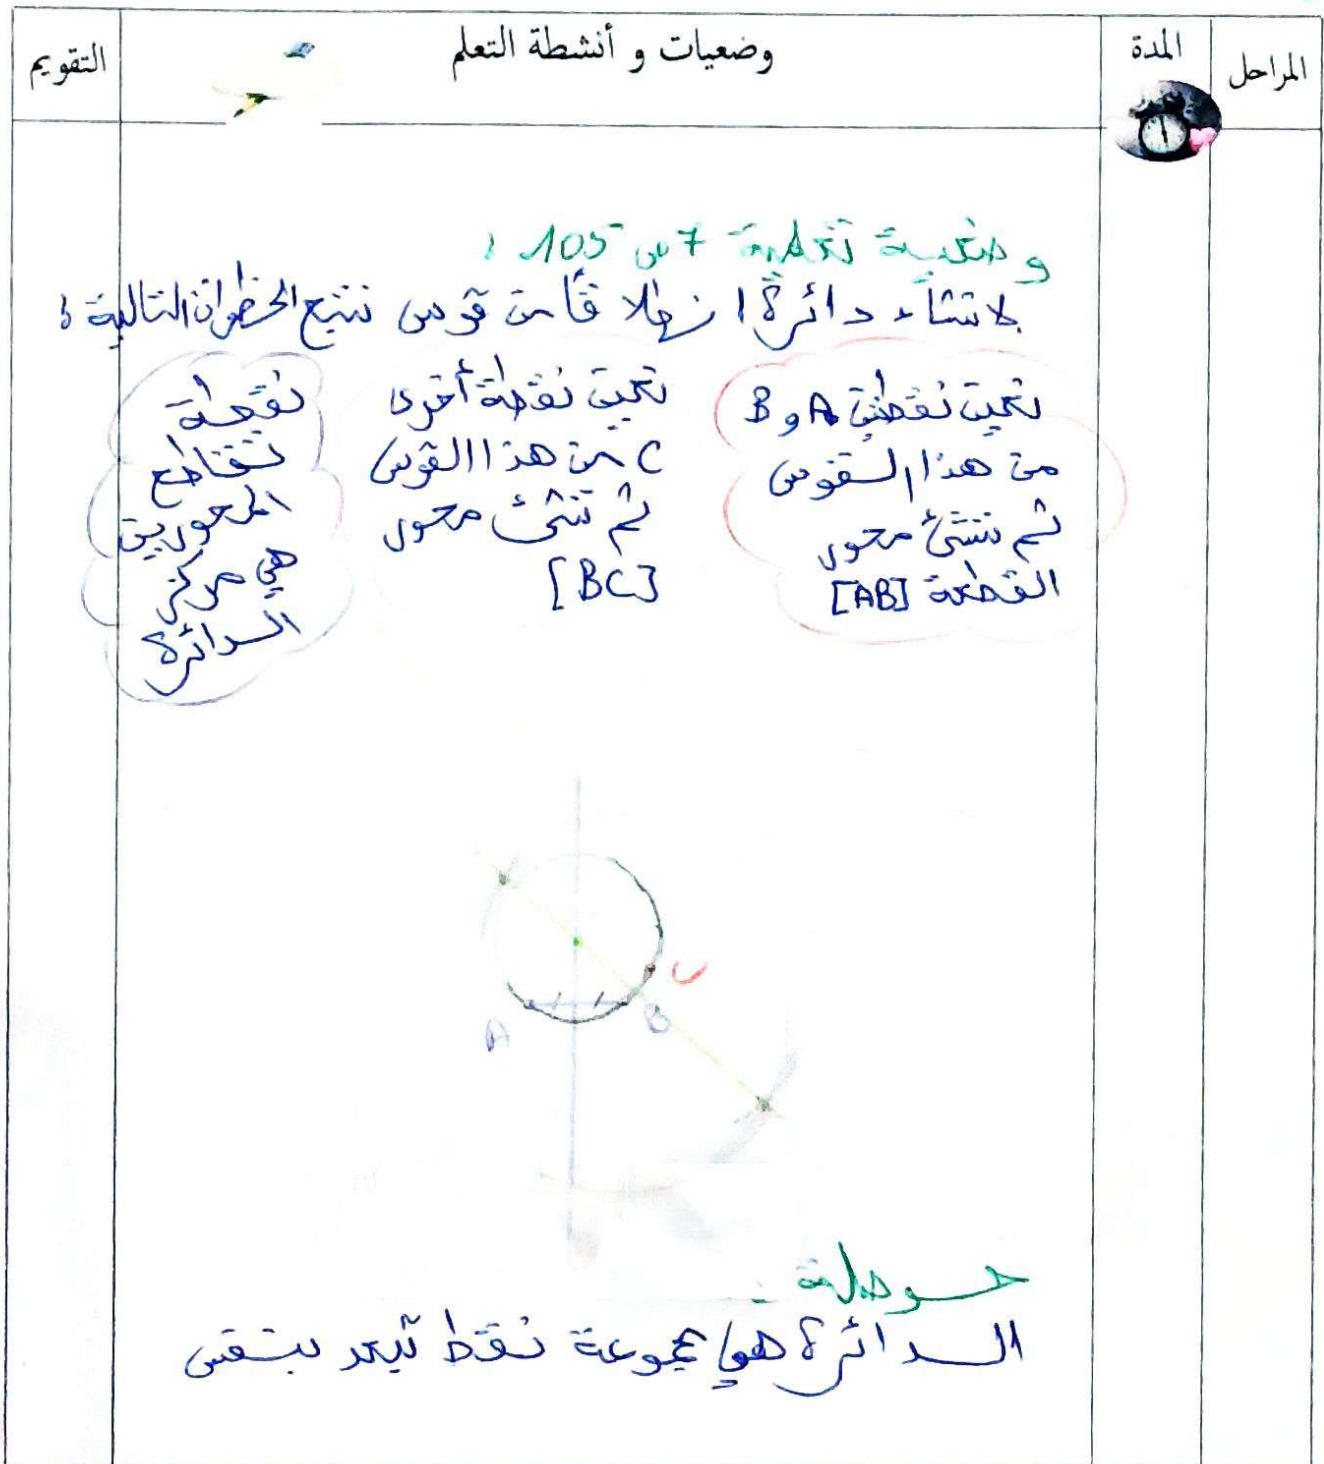 المراحل
المدة
وضعيات و أنشطة التعلم
التقويم
وضعية تعلمية 7 ص 105 :
لانشاء دائرة انطلاقا من قوس نتبع الخطوات التالية :
نعين نقطتين A و B
من هذا القوس
ثم ننشئ محور
القطعة [AB]
نعين نقطة أخرى
C من هذا القوس
ثم ننشئ محور
[BC]
نقطة
تقاطع
المحورين
هي مركز
الدائرة
C
A
B
حوصلة :
الدائرة هي مجموعة نقط تبعد بنفس